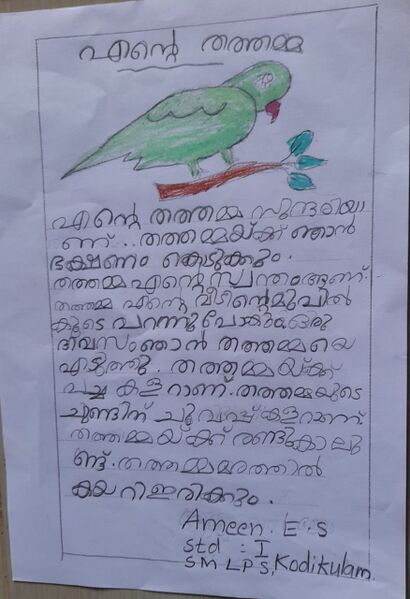 എൻ്റെ തത്തമ്മ
എൻ്റെ തത്തമ്മ സുന്ദരിയാ
ണ്. . തത്തമ്മയ്ക്ക് ഞാൻ
ഭക്ഷണം കൊടുക്കും.
തത്തമ്മ എൻ്റെ സ്വന്തം ആണ്.
തത്തമ്മ എൻ്റെ വീടിൻ്റെ മുമ്പിൽ
കൂടെ പറന്നു പോകും. ഒരു
ദിവസം ഞാൻ തത്തമ്മയെ
എടുത്തു. തത്തമ്മയ്ക്ക്
പച്ച കളറാണ്. തത്തമ്മയുടെ
ചുണ്ടിന് ചുവപ്പ് കളറാണ്.
തത്തമ്മയ്ക്ക് രണ്ടു കാലു
ണ്ട്. തത്തമ്മ മരത്തിൽ
കയറി ഇരിക്കും.
Ameen. E. S
std : I
S M L P S, Kodikulam.